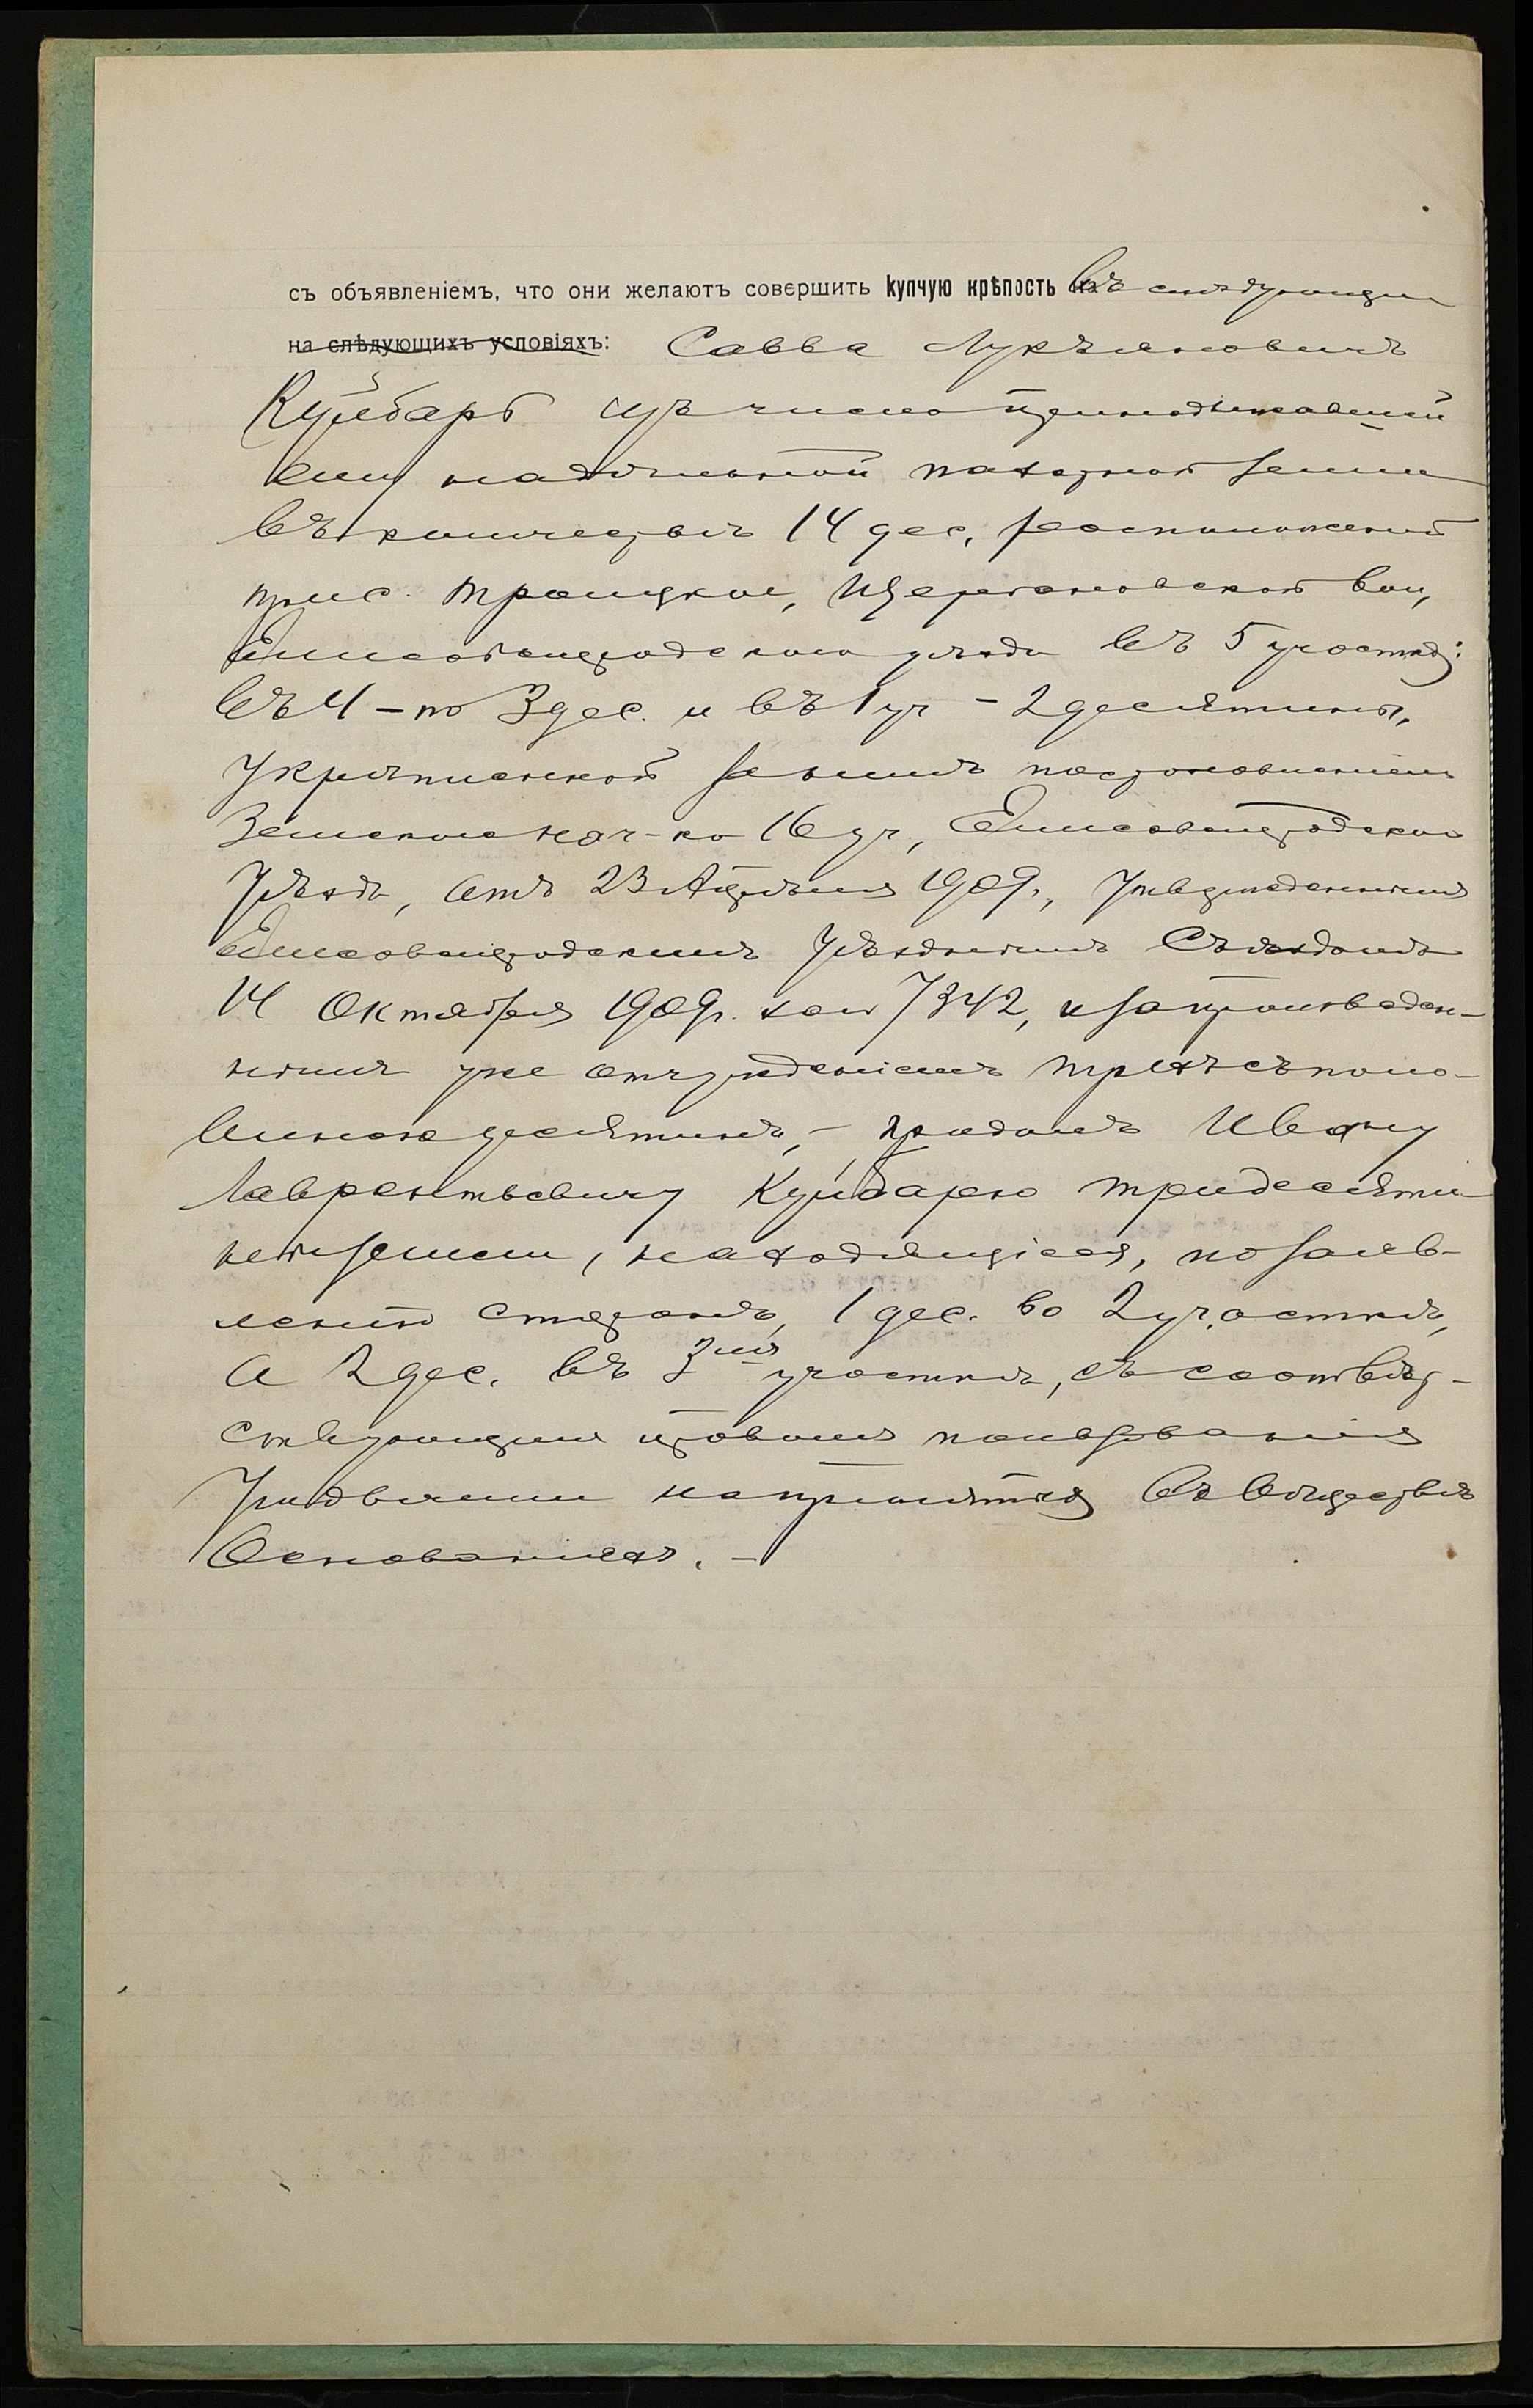 съ объявленіемъ, что они желаютъ совершить купчую крѣпость въ слѣдующем
на слѣдующихъ условіяхъ: Савва Лукьяновичъ
Куйбарь изъ числа принадлежавшей
ему надѣльной пахатной земли
въ количествѣ 14 дес, расположенной
при с. Троицкое, вол,
Елисаветградскаго уѣзда въ 5 участкахъ:
въ 4 - по 3 дес. и въ 1 уч - 2 десятины,
укрѣпленной за нимъ постановленіемъ
Земскаго нач-ка 16 уч, Елисаветградскаго
уѣзда, отъ 23 Апрѣля 1909г., утвержденнымъ
Елисаветградскимъ Уѣзднымъ Съѣздомъ
14 Октября 1909г. за № 7342, и за произведен-
нымъ уже отчужденіемъ трехъ съ поло-
виною десятинъ, - продалъ Ивану
Лаврентьевичу Куйбарю три десяти-
ны земли, находящіяся, по заяв-
ленію сторонъ, 1 дес. во 2 участкѣ,
а 2 дес. въ 3мъ участкѣ, съ соотвѣт-
ствующимъ правомъ пользованія
угодьями на принятыхъ въ обществѣ
основаніяхъ. -